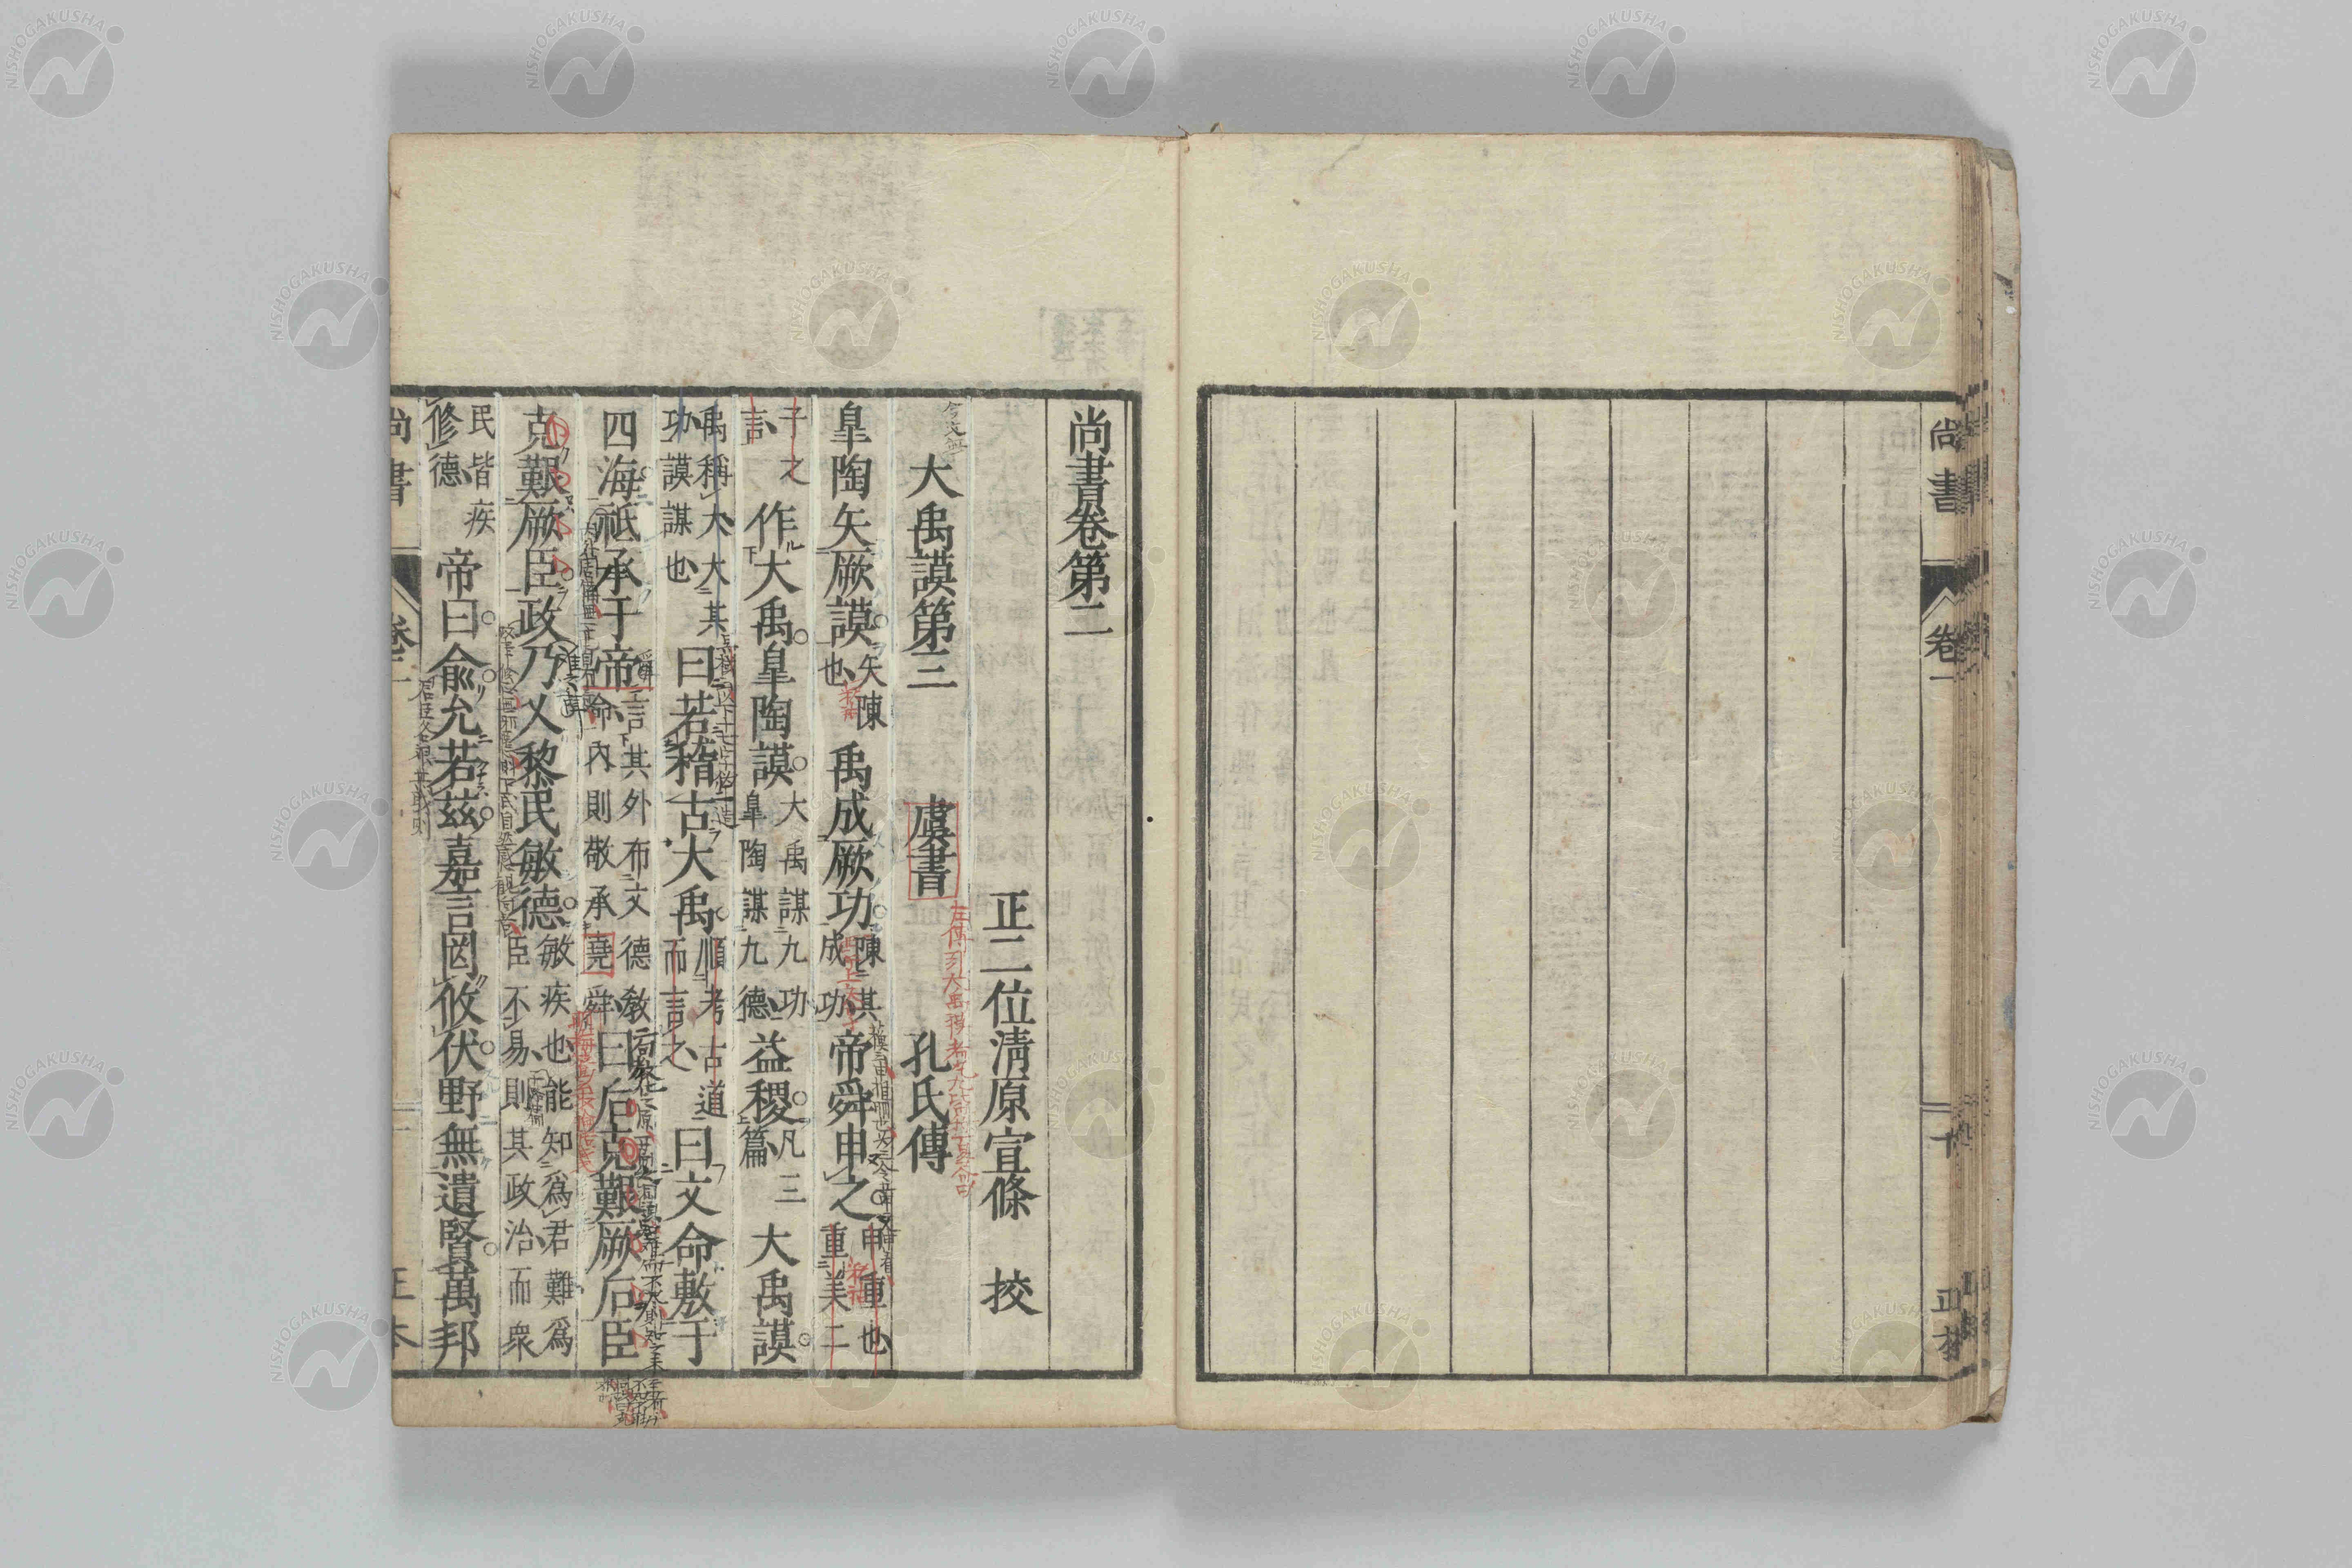 尚書
卷一
十
正本
尚書卷第二
正二位清原宣條　挍
大禹謨第三　虞書　孔氏傳
皐陶矢厥謨矢陳也禹成厥功陳其成功帝舜申之申重也重美二
子之言作大禹皐陶謨大禹謀九功皐陶謀九德益稷凡三篇大禹謨
禹稱大大其功謨謀也曰若稽古大禹順考古道而言之曰文命敷于
四海祗承于帝言其外布文德敎命內則敬承堯舜曰后克艱厥后臣
克艱厥臣政乃乂黎民敏德敏疾也能知爲君難爲臣不易則其政治而衆
民皆疾修德帝曰兪允若茲嘉言罔攸伏野無遺賢萬邦
尚書
卷二
一
正本
NISHOGAKUSHA